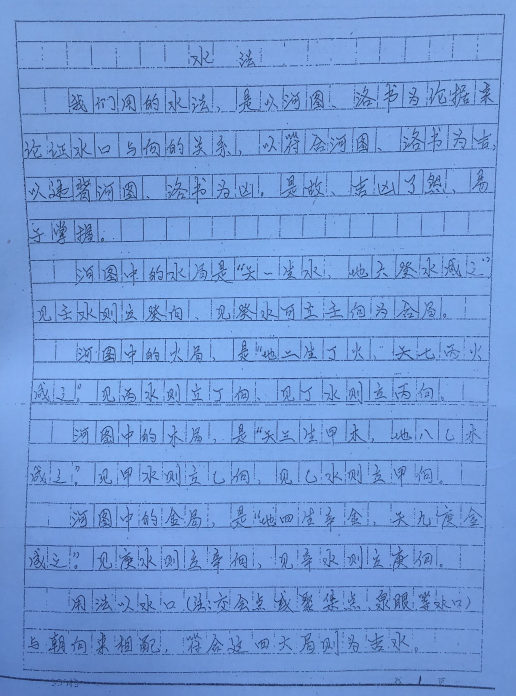 水法
我们用的水法，是以河图、洛书为论据来
论证水口与向的关系，以符合河图、洛书为吉，
以违背河图、洛书为凶。是故，吉凶了然，易
于掌握。
河图中的水局是“天一生水，地六癸水成之”
见壬水则立癸向、见癸水可立壬向为合局。
河图中的火局，是“地二生丁火，天七丙火
成之”。见丙水则立丁向，见丁水则立丙向。
河图中的木局，是“天三生甲木，地八乙木
成之”。见甲水则立乙向，见乙水则立甲向。
河图中的金局，是“地四生辛金，天九庚金
成之”。见庚水则立辛向，见辛水则立庚向。
用法以水口（注：交会点或聚集点，泉眼等水口）
与朝向来相配，符合这四大局则为吉水。
1